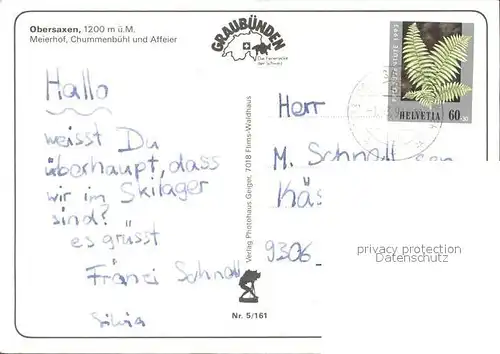 Obersaxen, 1200 m ü.M.
Meierhof, Chummenbühl und Affeier
GRAUBÜNDEN
Die Ferienecke
der Schweiz
PRO JUVENTUTE 1992
HELVETIA 60
Hallo
weisst Du
überhaupt, dass
wir im Skilager
sind?
es grüsst
Fränzi Schnell
Silvia
Verlag Photohaus Geiger, 7018 Flims-Waldhaus
Nr. 5/161
Herr
M. Schnell
Käs
9306
privacy protection
Datenschutz